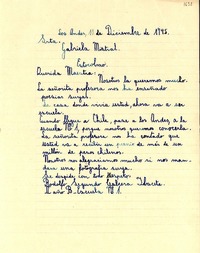 Los Andes, 11 Diciembre de 1945.
Srta. Gabriela Mistral.
Estocolmo.
Querida Maestra:
Nosotros la queremos mucho.
La señorita profesora nos ha enseñado
poesías suyas.
La casa donde vivía usted, ahora va a ser
escuela.
Cuando llegue a Chile, pase a los Andes, a la
escuela Nº 1, porque nosotros queremos conocerla.
La señorita profesora nos ha contado que
usted va a recibir un premio de más de un
millón de pesos chilenos.
Nosotros nos alegraríamos mucho si nos man-
dara una fotografía suya.
Se despide con todo respeto.
Rodolfo Segundo Cabrera
año Escuela Nº 1.